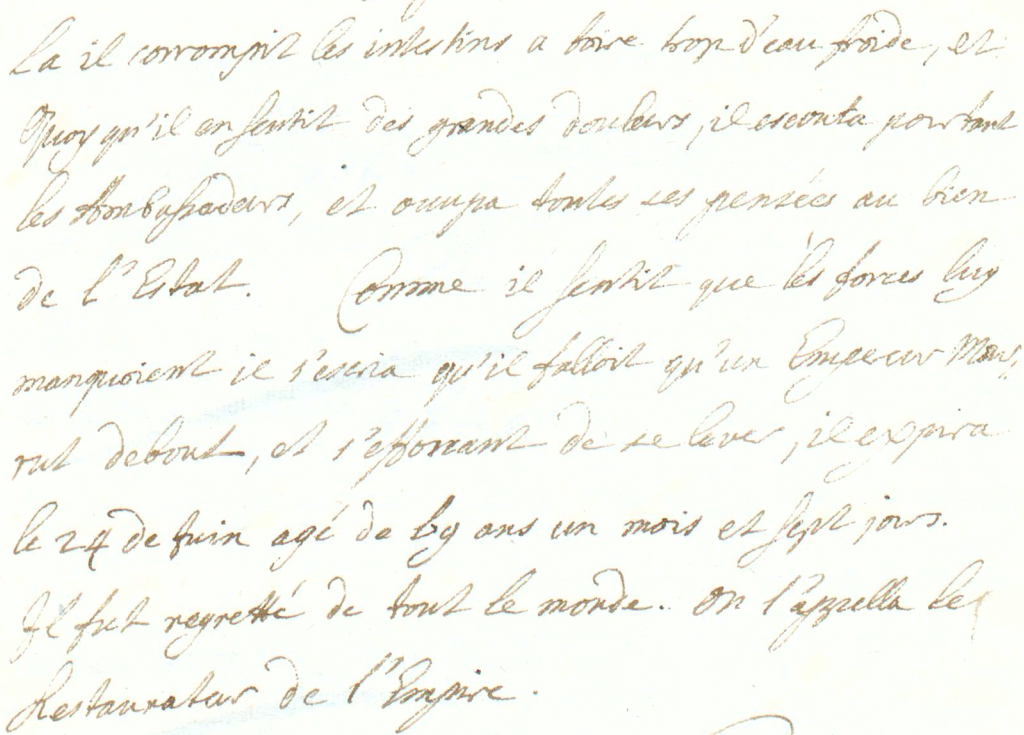 La il corrompit les intestins a boire trop d'eau froide, et
Quoy qu'il en sentit des grandes douleurs, il escouta pourtant
les Ambassadeurs, et occupa toutes ses pensées au bien
de l'Estat. Comme il sentit que les forces luy
manquoient il s'escria qu'il falloit qu'un Empereur Mou,,
rut debout, et s'efforcant de se lever, il expira
le 24 de Juin agé de 69 ans un mois et sept jours.
Il fut regretté de tout le monde. On l'appella le
Restaurateur de l'Empire.